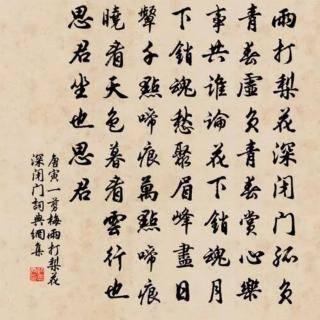 雨打梨花深閉門孤負
青春虛負青春賞心樂
事共誰論花下銷魂月
下銷魂愁聚眉峰盡日
顰千點啼痕萬點啼痕
曉看天色暮看雲行也
思君坐也思君
唐寅一剪梅雨打梨花
深閉門詞典網集